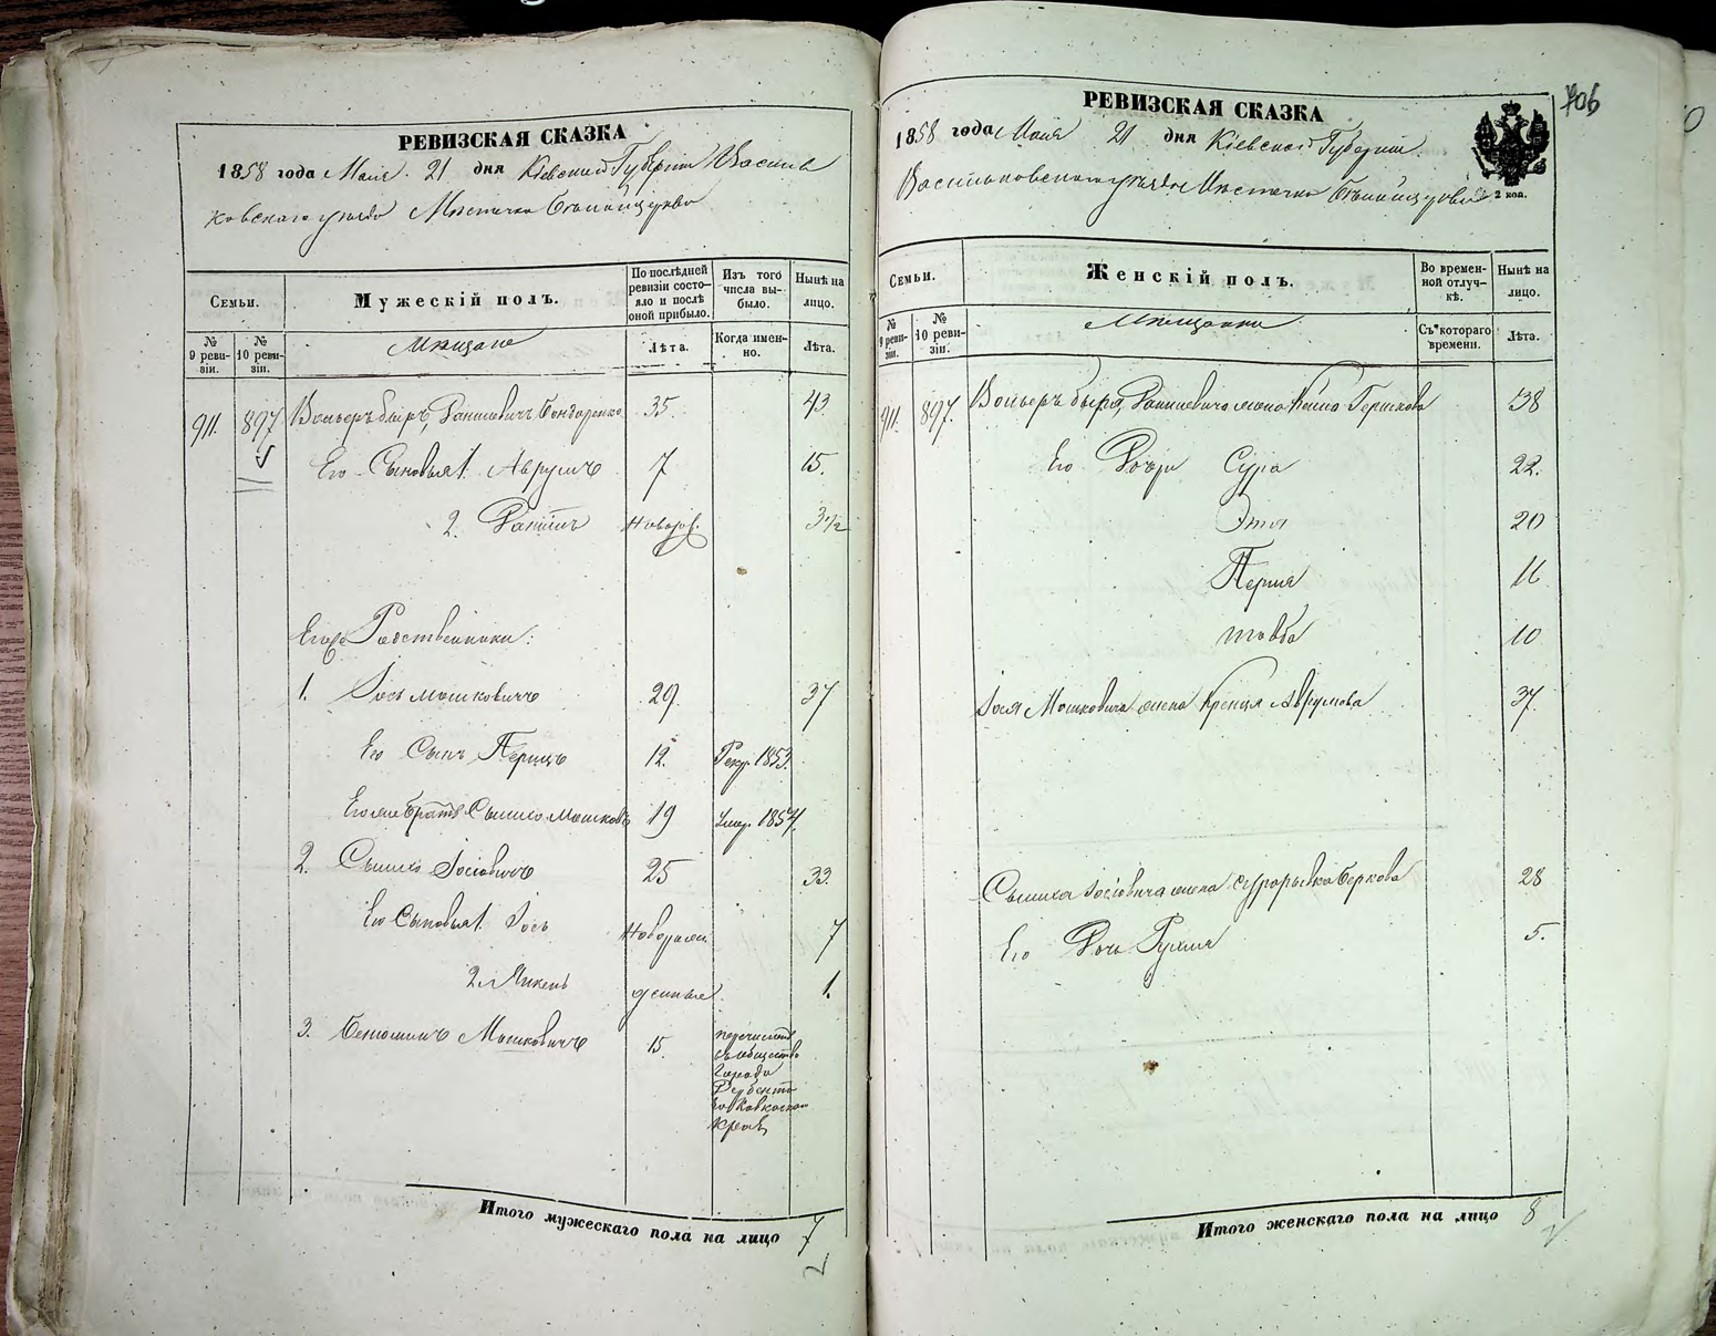 РЕВИЗСКАЯ СКАЗКА
1858 года Мая 21 дня Кіевской Губерніи Василь
ковскаго уезда Местечка Белой церкви
Семьи.
Мужескій полъ.
По последней ревизіи состо-
яло и послѣ
оной прибыло.
Изъ того
числа вы-
было.
Нынѣ на
лицо.
№
9 реви-
зіи.
№
10 реви-
зіи.
Мещане
Лѣта.
Когда имен-
но.
Лѣта.
911. 897 Вольберъ Данилевичъ Бондаренко 35. 43.
Его Сыновья 1. Аврумъ 7 15.
2. Новорож. 3 1/2
Его Родственники:
1. Іось Мошковичъ 29. 37
Его Сынъ Перецъ 12. Рекр. 1853.
Его же братъ Сымха Мошков 19 Умер. 1854.
2. Сымха Іосіовичъ 25 33.
Его Сыновья 1. Іось Новорож 7
2. Янкель денные 1.
3. Бенюминъ Мошковичъ 15. перечислен
въ общество
города
Дербента
Кавказском
крае
Итого мужескаго пола на лицо 7
РЕВИЗСКАЯ СКАЗКА
706
1858 года Мая 21 дня Кіевской Губерніи
Васильковскаго уезда Местечка Белой церкви
2 коп.
Семьи.
Женскій полъ.
Во времен-
ной отлуч-
кѣ.
Нынѣ на
лицо.
№
9 реви-
зіи.
№
10 реви-
зіи.
Мещанки
Съ котораго
времени.
Лѣта.
911. 897. жена Гершкова 38
Его Дочери Сура 22.
Этя 20
Перля 16
товба 10
Іося Мошковича жена Крейця Аврумова 37.
Сымха Іосіовича жена Сура рывка Беркова 28
Его Дочь Рухля 5.
Итого женскаго пола на лицо 8